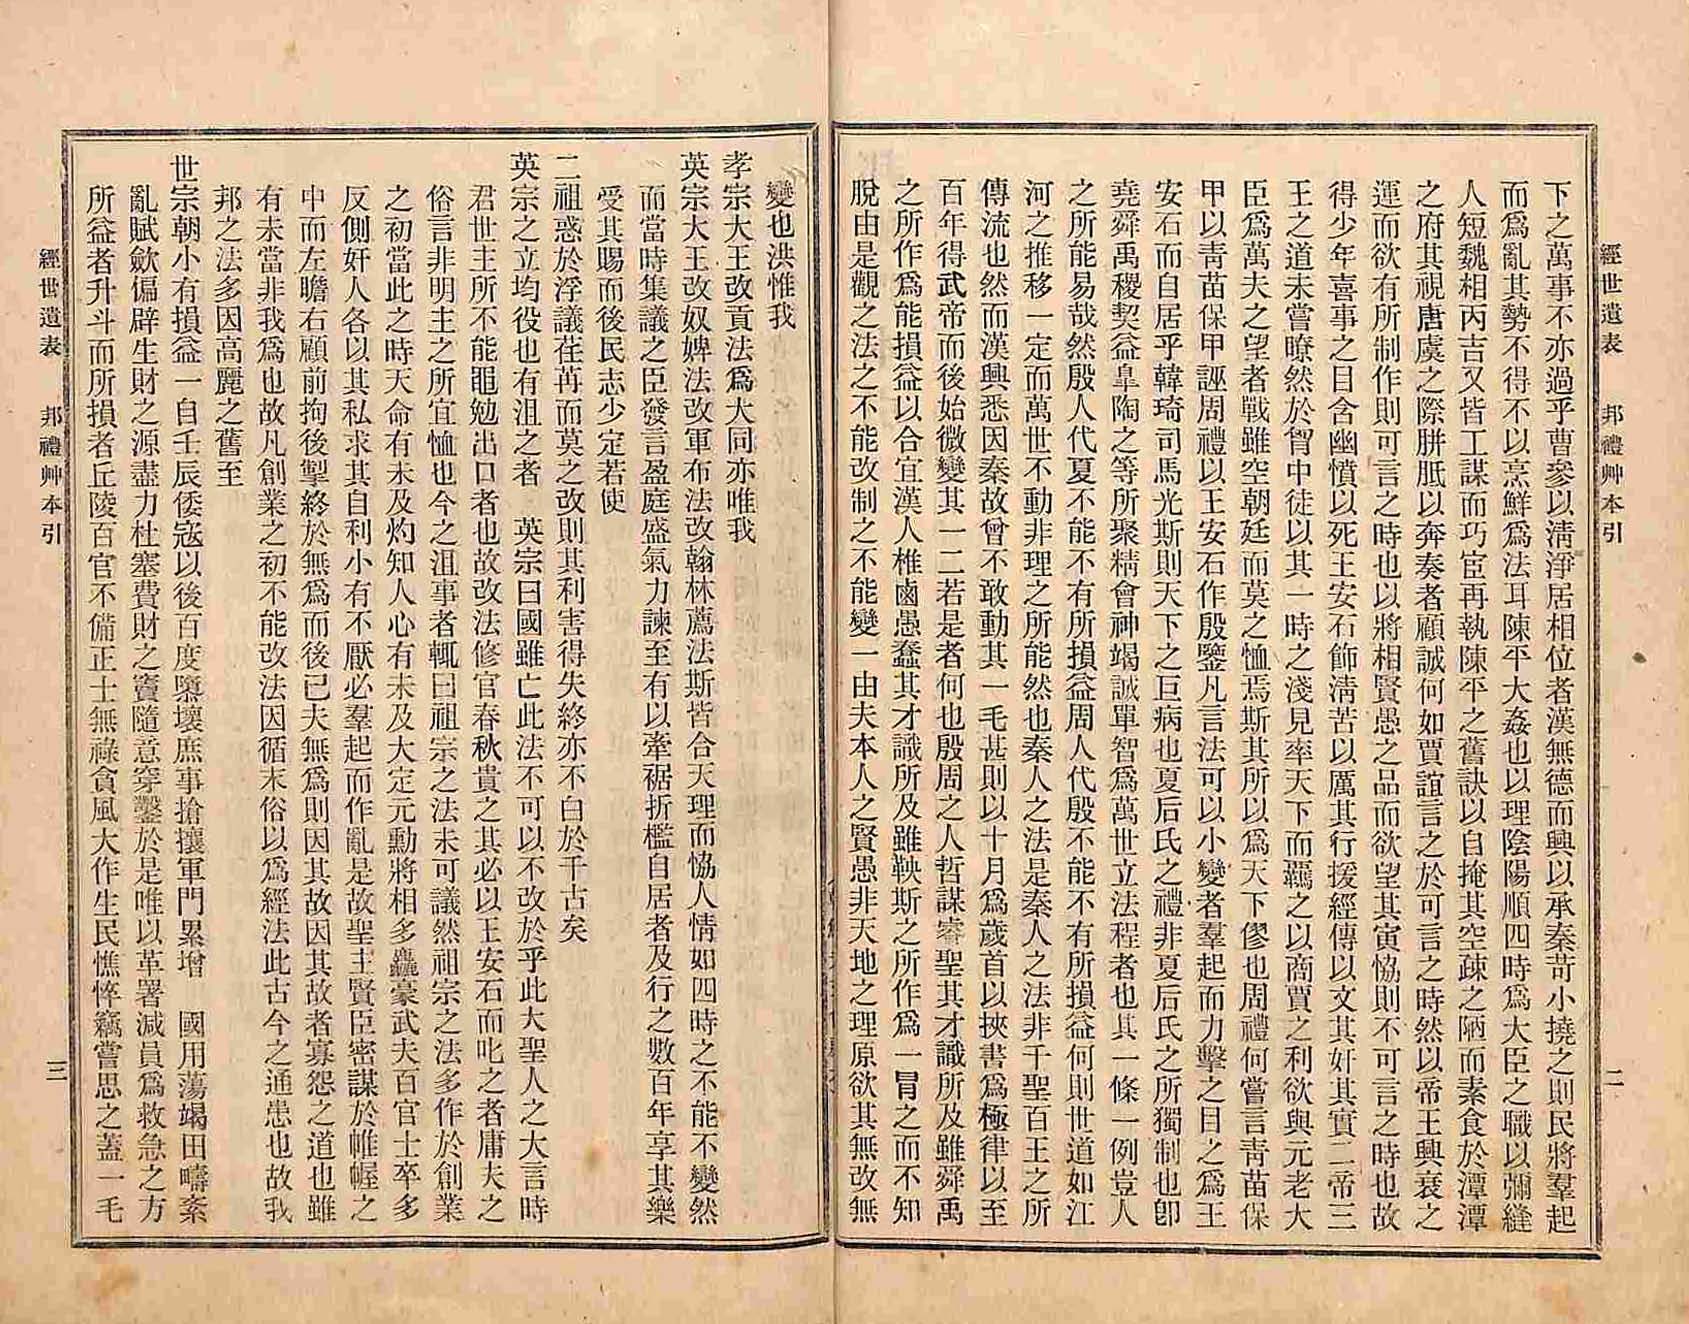 經世遺表　邦禮艸本引　二
下之萬事不亦過乎曹參以淸淨居相位者漢無德而興以承秦苛小撓之則民將羣起
而爲亂其勢不得不以烹鮮爲法耳陳平大姦也以理陰陽順四時爲大臣之職以彌縫
人短魏相丙吉又皆工謀而巧宦再執陳平之舊訣以自掩其空疎之陋而素食於潭潭
之府其視唐虞之際胼胝以奔奏者顧誠何如賈誼言之於可言之時然以帝王興衰之
運而欲有所制作則可言之時也以將相賢愚之品而欲望其寅恊則不可言之時也故
得少年喜事之目含幽憤以死王安石飾淸苦以厲其行援經傳以文其奸其實二帝三
王之道未嘗瞭然於胷中徒以其一時之淺見率天下而覊之以商賈之利欲與元老大
臣爲萬夫之望者戰雖空朝廷而莫之恤焉斯其所以爲天下僇也周禮何嘗言靑苗保
甲以靑苗保甲誣周禮以王安石作殷鑒凡言法可以小變者羣起而力擊之目之爲王
安石而自居乎韓琦司馬光斯則天下之巨病也夏后氏之禮非夏后氏之所獨制也卽
堯舜禹稷契益皐陶之等所聚精會神竭誠單智爲萬世立法程者也其一條一例豈人
之所能易哉然殷人代夏不能不有所損益周人代殷不能不有所損益何則世道如江
河之推移一定而萬世不動非理之所能然也秦人之法是秦人之法非千聖百王之所
傳流也然而漢興悉因秦故曾不敢動其一毛甚則以十月爲歲首以挾書爲極律以至
百年得武帝而後始微變其一二若是者何也殷周之人哲謀睿聖其才識所及雖舜禹
之所作爲能損益以合宜漢人椎鹵愚蠢其才識所及雖鞅斯之所作爲一冐之而不知
脫由是觀之法之不能改制之不能變一由夫本人之賢愚非天地之理原欲其無改無
變也洪惟我
孝宗大王改貢法爲大同亦唯我
英宗大王改奴婢法改軍布法改翰林薦法斯皆合天理而恊人情如四時之不能不變然
而當時集議之臣發言盈庭盛氣力諫至有以牽裾折檻自居者及行之數百年享其樂
受其賜而後民志少定若使
二祖惑於浮議荏苒而莫之改則其利害得失終亦不白於千古矣
英宗之立均役也有沮之者　英宗曰國雖亡此法不可以不改於乎此大聖人之大言時
君世主所不能黽勉出口者也故改法修官春秋貴之其必以王安石而叱之者庸夫之
俗言非明主之所宜恤也今之沮事者輒曰祖宗之法未可議然祖宗之法多作於創業
之初當此之時天命有未及灼知人心有未及大定元勳將相多麤豪武夫百官士卒多
反側奸人各以其私求其自利小有不厭必羣起而作亂是故聖主賢臣密謀於帷幄之
中而左瞻右顧前拘後掣終於無爲而後已夫無爲則因其故因其故者寡怨之道也雖
有未當非我爲也故凡創業之初不能改法因循末俗以爲經法此古今之通患也故我
邦之法多因高麗之舊至
世宗朝小有損益一自壬辰倭寇以後百度隳壞庶事搶攘軍門累增　國用蕩竭田疇紊
亂賦歛偏辟生財之源盡力杜塞費財之竇隨意穿鑿於是唯以革署減員爲救急之方
所益者升斗而所損者丘陵百官不備正士無祿貪風大作生民憔悴竊嘗思之蓋一毛
經世遺表　邦禮艸本引　三